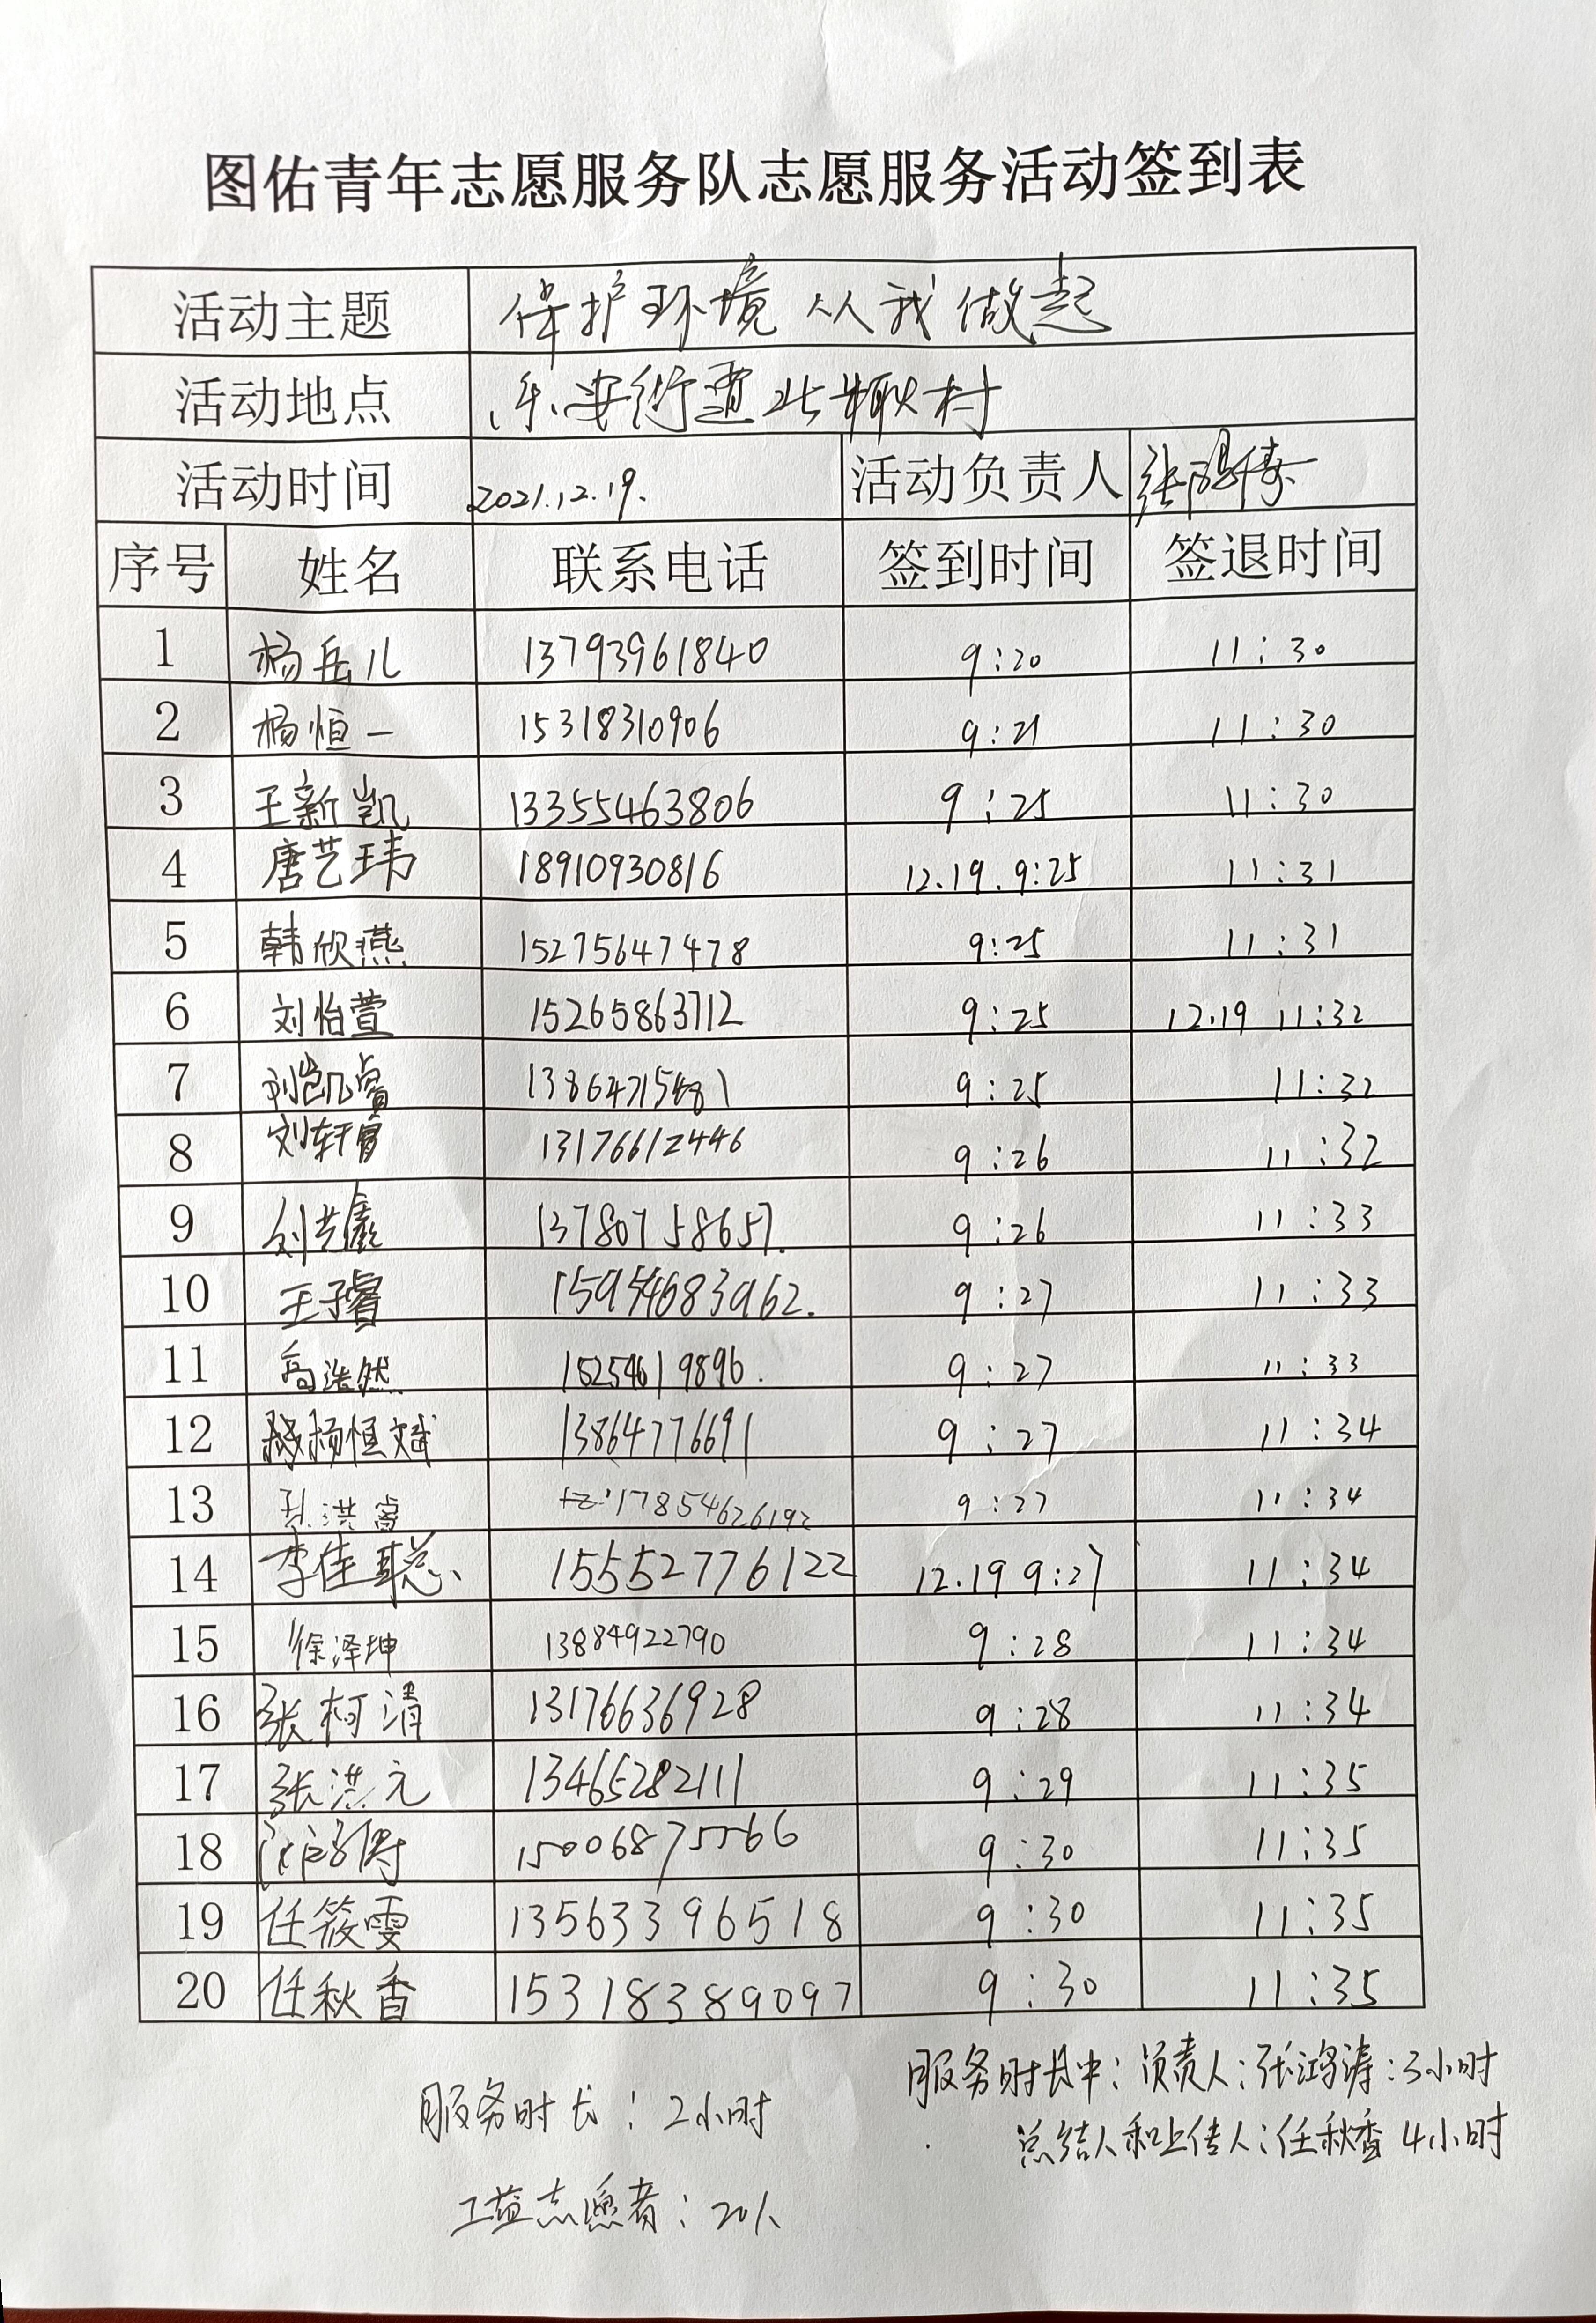 图佑青年志愿服务队志愿服务活动签到表
活动主题 保护环境 从我做起
活动地点 乐安街道北耿村
活动时间 2021.12.19. 活动负责人 张鸿涛
序号 姓名 联系电话 签到时间 签退时间
1 杨岳儿 13793961840 9:20 11:30
2 杨恒一 15318310906 9:21 11:30
3 王新凯 13355463806 9:25 11:30
4 唐艺玮 18910930816 12.19.9:25 11:31
5 韩欣燕 15275647478 9:25 11:31
6 刘怡萱 15265863712 9:25 12.19 11:32
7 刘凯睿 9:25 11:32
8 刘轩睿 13176612446 9:26 11:32
9 刘艺 13780758657. 9:26 11:33
10 王子睿 15954683962. 9:27 11:33
11 高浩然 15254619896. 9:27 11:33
12 杨恒斌 13864776691 9:27 11:34
13 洪睿 17854626192 9:27 11:34
14 李佳聪 15552776122 12.19 9:27 11:34
15 徐泽坤 13884922790 9:28 11:34
16 张柯清 13176636928 9:28 11:34
17 张洪元 13465282111 9:29 11:35
18 15006875566 9:30 11:35
19 任筱雯 13563396518 9:30 11:35
20 任秋香 15318389097 9:30 11:35
服务时长中:负责人:张鸿涛:3小时
服务时长:2小时
总结人和上传人:任秋香 4小时
工益志愿者:20人